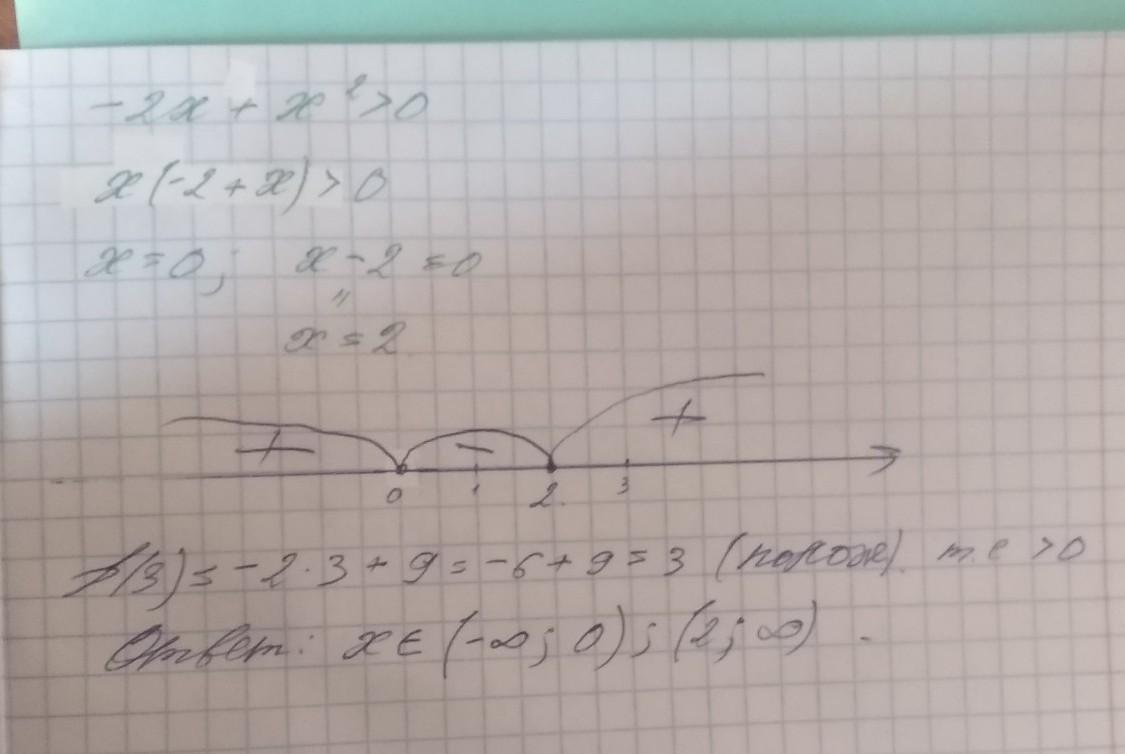 -2x + x² > 0
x(-2 + x) > 0
x = 0; x - 2 = 0
"
x = 2
+ - +
0 1 2. 3
f(3) = -2·3 + 9 = -6 + 9 = 3 (полож). т.е > 0
Ответ: x ∈ (-∞; 0); (2; ∞).